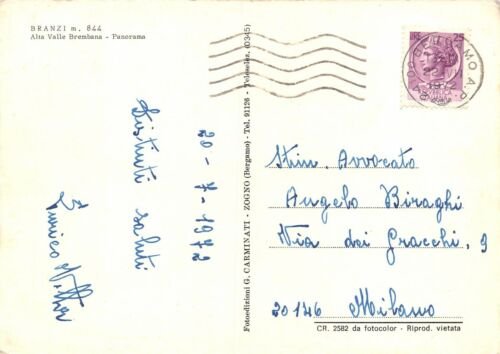 BRANZI m. 844
Alta Valle Brembana - Panorama
20-7-1972
Distinti saluti
Fotoedizioni G. CARMINATI - ZOGNO (Bergamo) - Tel. 91126 - Teleselez. (0345)
25
Stim. Avvocato
Angelo Biraghi
Via dei Gracchi, 9
20146 Milano
CR. 2582 da fotocolor - Riprod. vietata